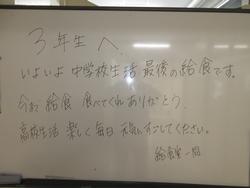 3年生へ
いよいよ中学校生活最後の給食です。
今まで給食食べてくれありがとう。
高校生活楽しく毎日元気にすごしてください。
給食室一同